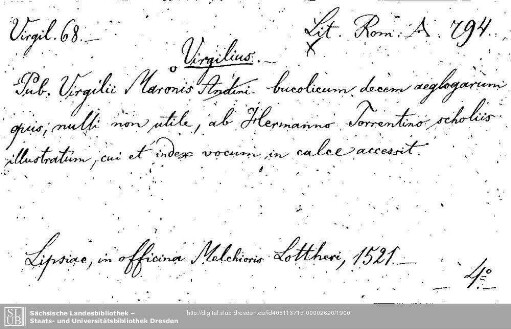 Virgil. 68.
Lit. Rom. A. 794.
Virgilius.
Pub. Virgilii Maronis Andini bucolicum, decem aeglogarum
opus, nulli non utile, ab Hermanno Torrentino scholiis
illustratum, cui et index vocum in calce accessit.
Lipsiae, in officina Melchioris Lottheri, 1521.
4°
SLUB
Sächsische Landesbibliothek –
Staats- und Universitätsbibliothek Dresden